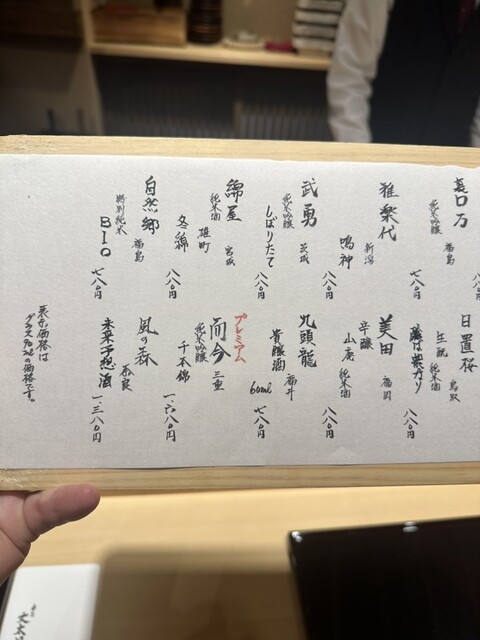 ロ万
純米吟醸
福島
七八〇円
雅楽代
新潟
鳴神
八八〇円
武勇
純米吟醸
茨城
しぼりたて
八八〇円
綿屋
純米酒
宮城
雄町
冬綿
八八〇円
自然郷
特別純米
福島
BIO
七八〇円
日置桜
鳥取
生酛
純米酒
八八〇円
美田
福岡
辛醸
山廃純米酒
八八〇円
九頭龍
福井
貴醸酒
60ml
七八〇円
プレミアム
而今
三重
純米吟醸
千本錦
一、六八〇円
風の森
奈良
未来予想酒
一、三八〇円
表示価格は
グラス90mlの価格です。